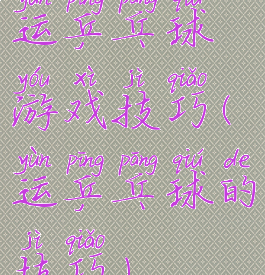 yùn pīng pāng qiú
运乒乓球
yóu xì jì qiǎo
游戏技巧(
yùn pīng pāng qiú de
运乒乓球的
jì qiǎo
技巧)